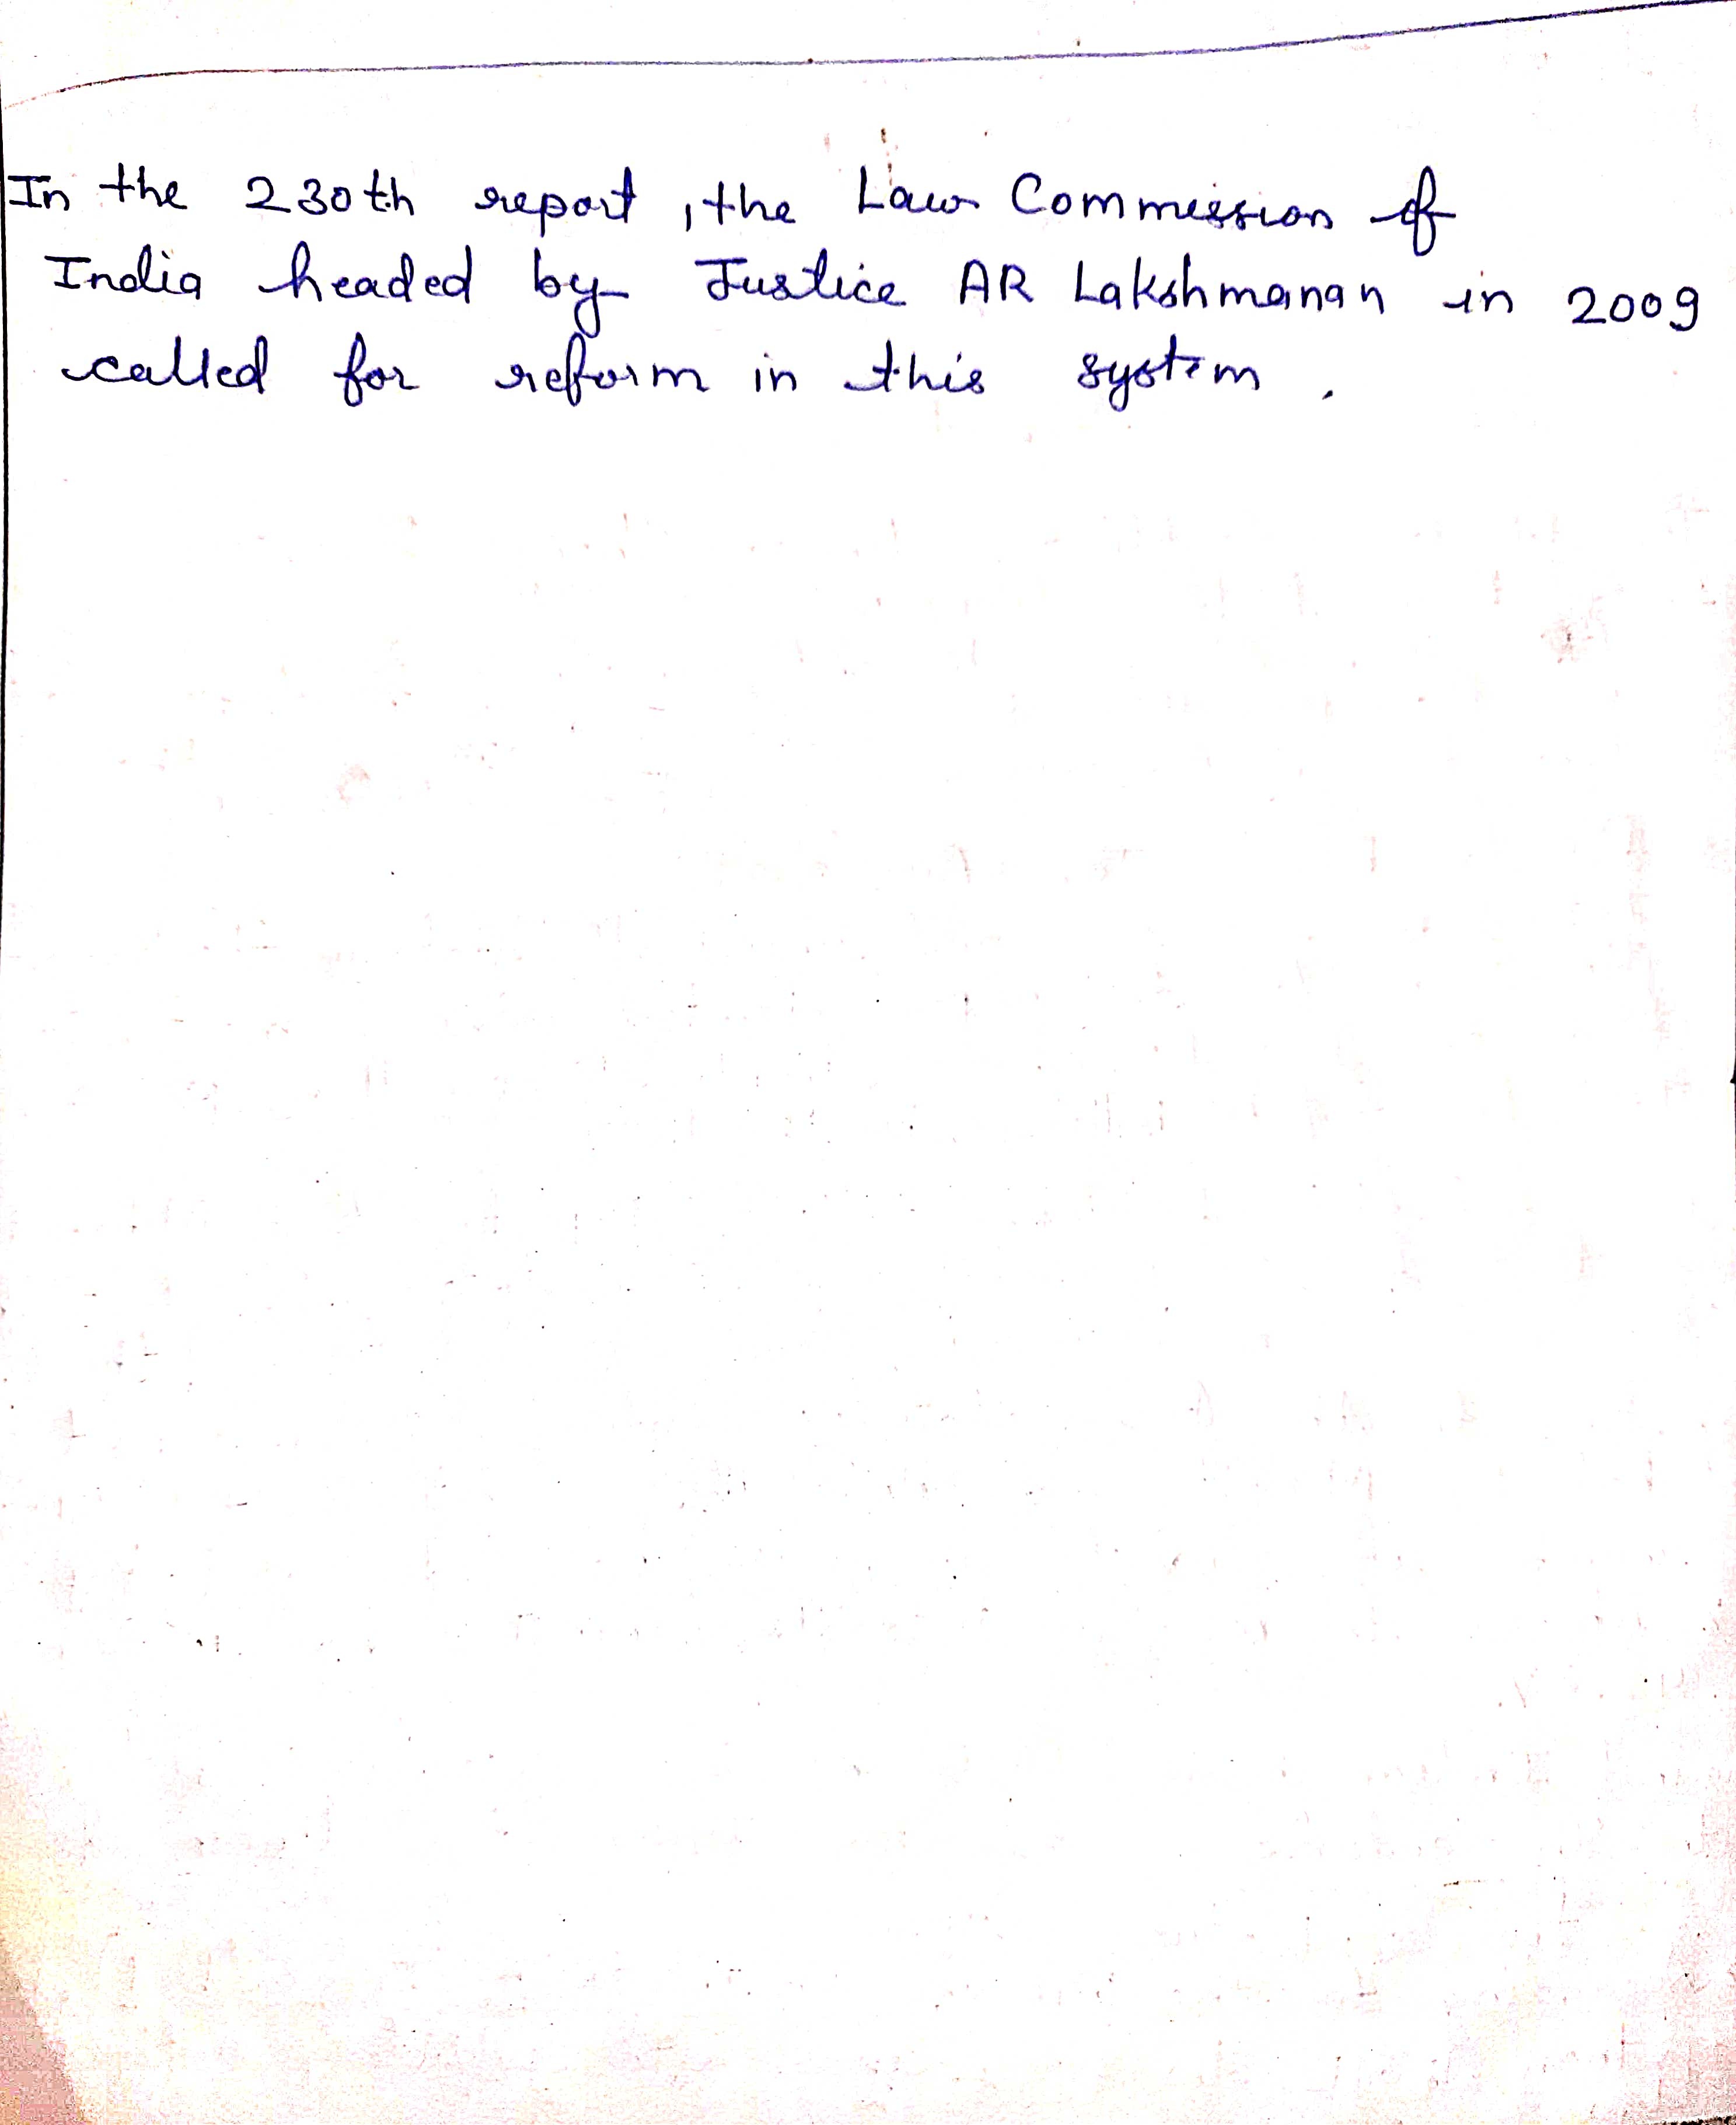 In the 230th report, the Law Commission of
India headed by Justice AR Lakshmanan in 2009
called for reform in this system.